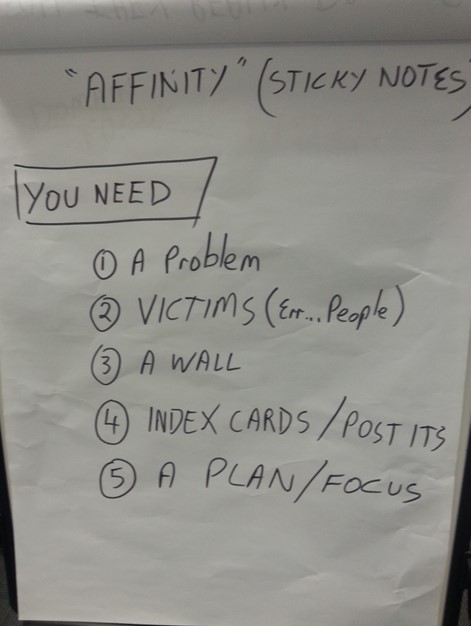 "AFFINITY" (STICKY NOTES)
YOU NEED
① A Problem
② VICTIMS (Err... People)
③ A WALL
④ INDEX CARDS / POST ITS
⑤ A PLAN / FOCUS